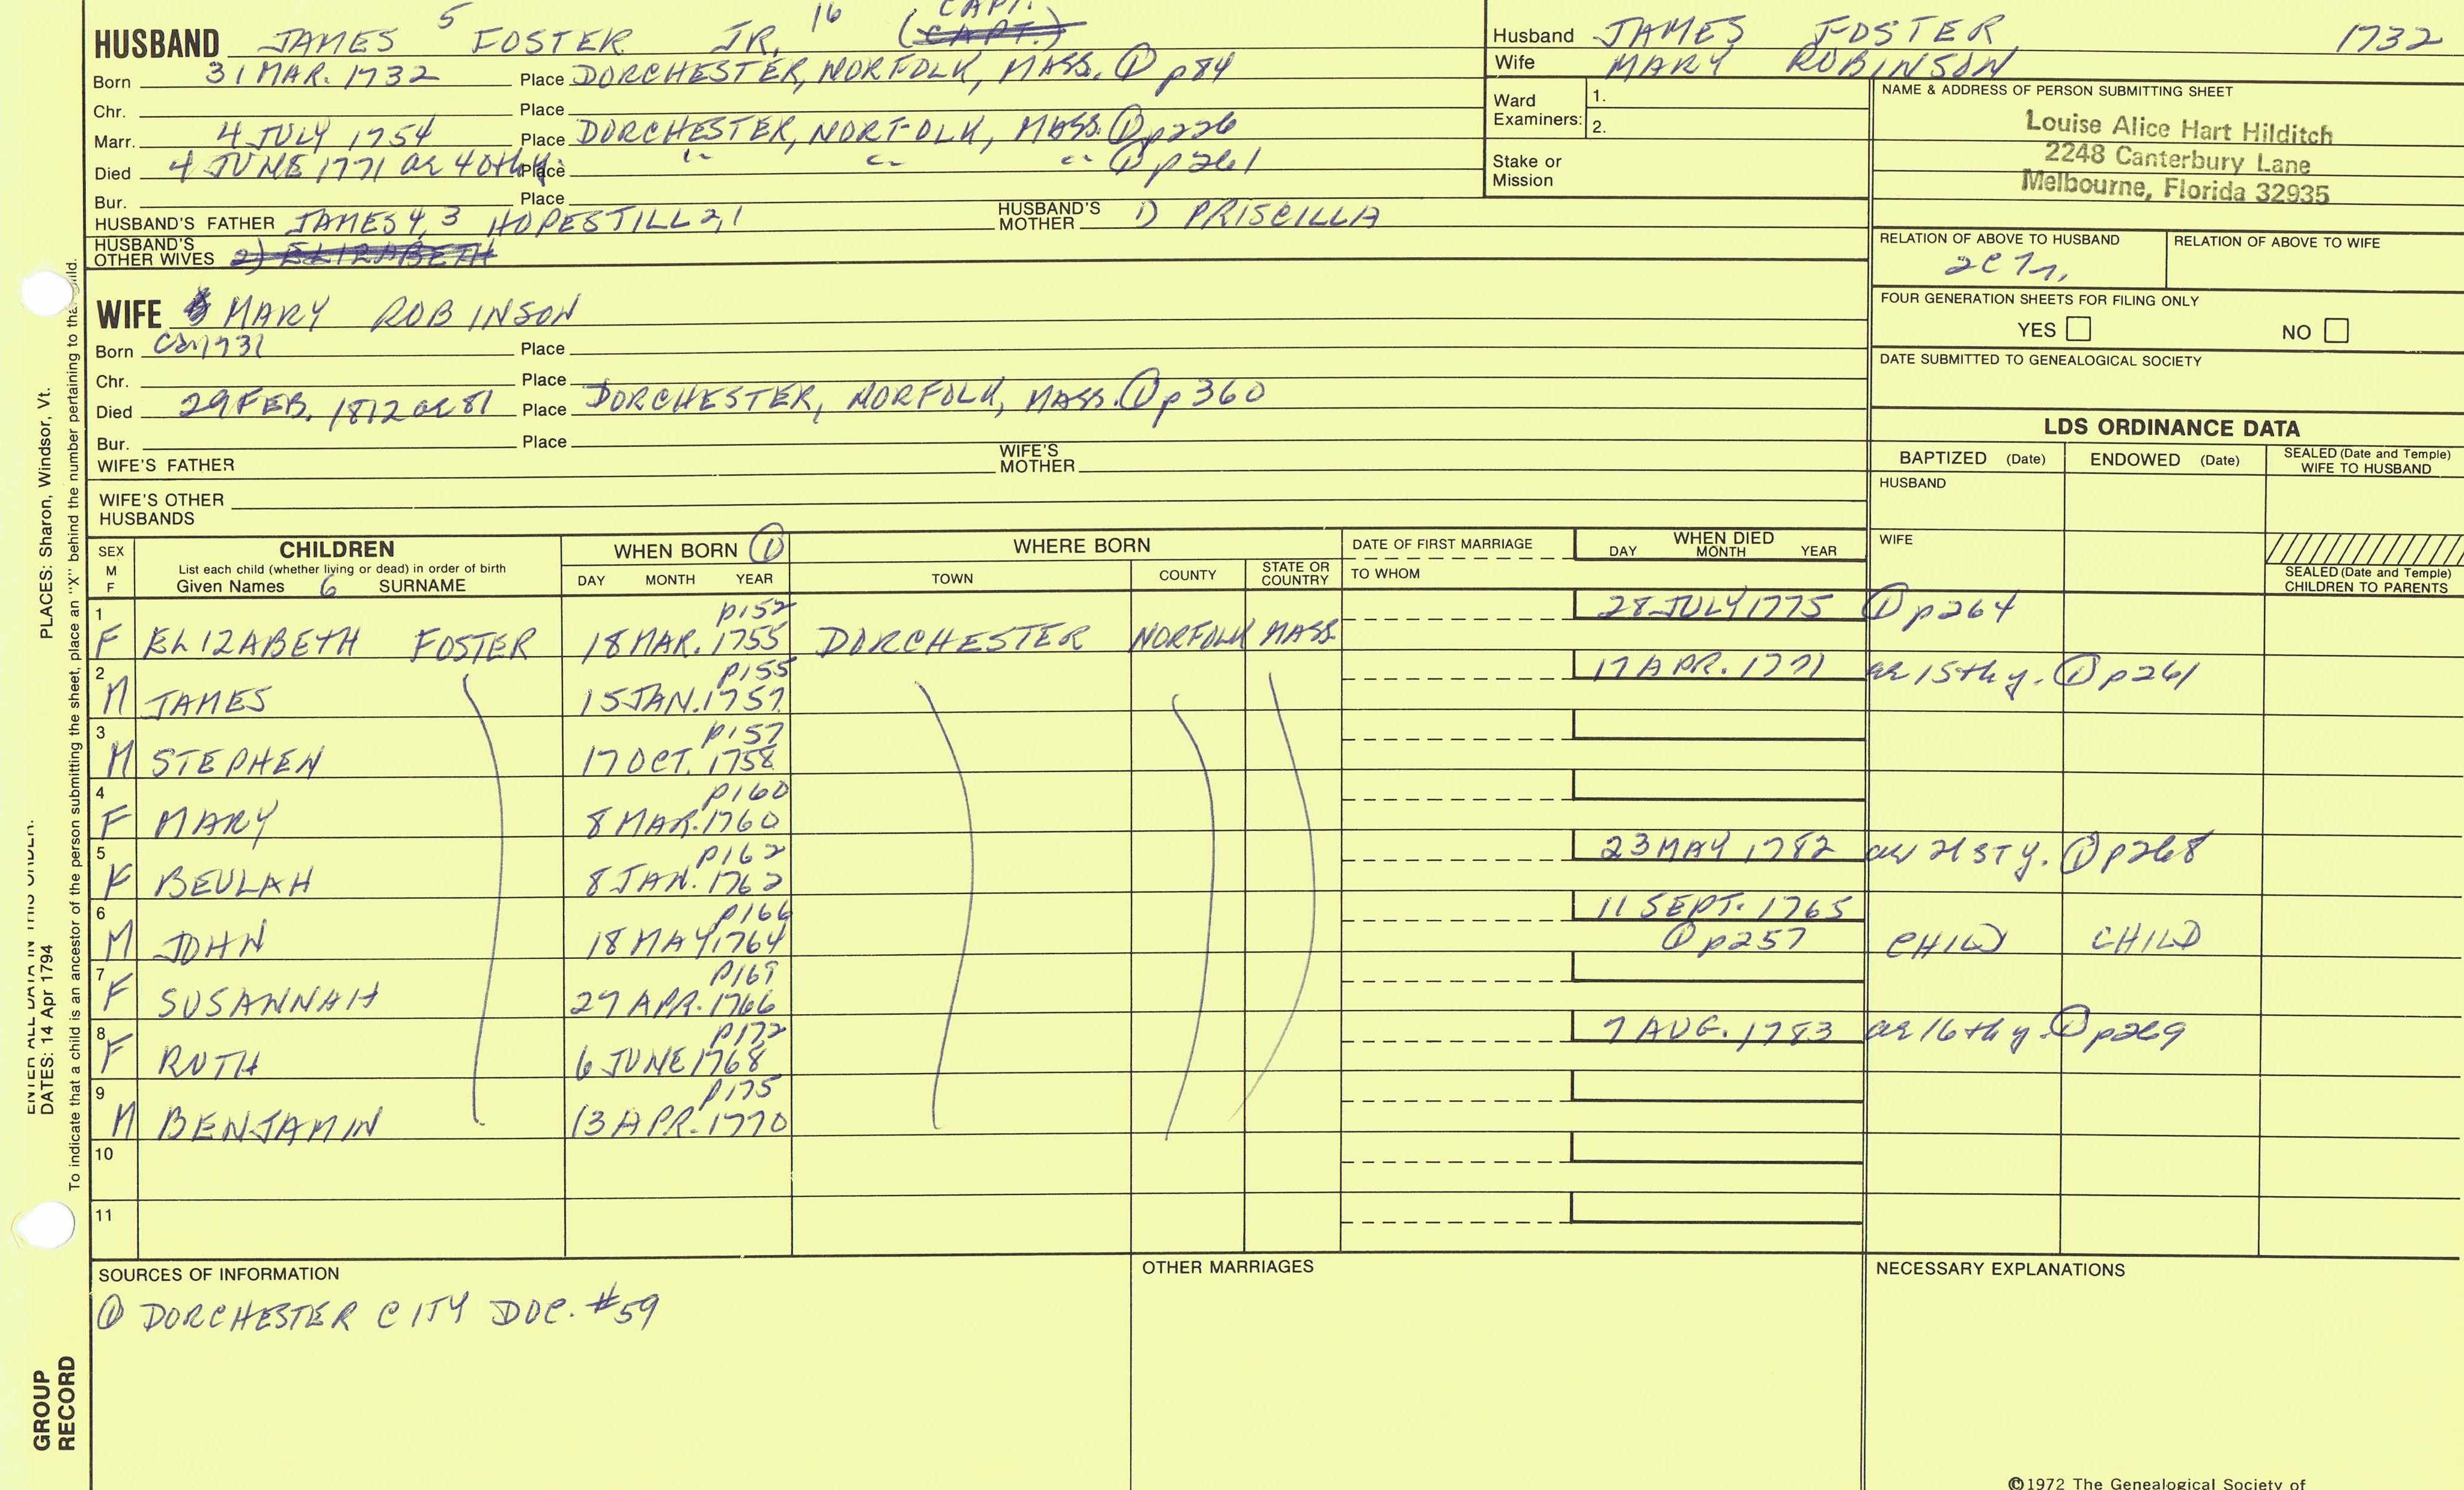 CAPT.
HUSBAND JAMES 5 FOSTER JR. 16 (CAPT.)
Born 31 MAR. 1732 Place DORCHESTER, NORFOLK, MASS. ① p84
Chr. Place
Marr. 4 JULY 1754 Place DORCHESTER, NORFOLK, MASS. ① p226
Died 4 JUNE 1771 ae 40th y. Place " " " ① p261
Bur. Place
HUSBAND'S FATHER JAMES 4, 3 HOPESTILL 2, 1 HUSBAND'S MOTHER 1) PRISCILLA
HUSBAND'S OTHER WIVES 2) ELIZABETH
WIFE MARY ROBINSON
Born ca 1731 Place
Chr. Place
Died 29 FEB. 1812 ae 81 Place DORCHESTER, NORFOLK, MASS. ① p360
Bur. Place
WIFE'S FATHER WIFE'S MOTHER
WIFE'S OTHER HUSBANDS
Husband JAMES FOSTER 1732
Wife MARY ROBINSON
Ward Examiners: 1.
2.
Stake or Mission
NAME & ADDRESS OF PERSON SUBMITTING SHEET
Louise Alice Hart Hilditch
2248 Canterbury Lane
Melbourne, Florida 32935
RELATION OF ABOVE TO HUSBAND RELATION OF ABOVE TO WIFE
FOUR GENERATION SHEETS FOR FILING ONLY
YES NO
DATE SUBMITTED TO GENEALOGICAL SOCIETY
LDS ORDINANCE DATA
BAPTIZED (Date) ENDOWED (Date) SEALED (Date and Temple) WIFE TO HUSBAND
HUSBAND
WIFE
SEALED (Date and Temple) CHILDREN TO PARENTS
SEX M F CHILDREN WHEN BORN ① WHERE BORN DATE OF FIRST MARRIAGE WHEN DIED
List each child (whether living or dead) in order of birth
Given Names 6 SURNAME DAY MONTH YEAR TOWN COUNTY STATE OR COUNTRY TO WHOM DAY MONTH YEAR
1 p152 28 JULY 1775 ① p264
F ELIZABETH FOSTER 18 MAR. 1755 DORCHESTER NORFOLK MASS.
2 p155 17 APR. 1771 ae 15th y. ① p261
M JAMES 15 JAN. 1757
3 p157
M STEPHEN 17 OCT. 1758
4 p160
F MARY 8 MAR. 1760
5 p162 23 MAY 1782 ae 21st y. ① p268
F BEULAH 8 JAN. 1762
6 p166 11 SEPT. 1765
M JOHN 18 MAY 1764 ① p257 CHILD CHILD
7 p169
F SUSANNAH 27 APR. 1766
8 p172 7 AUG. 1783 ae 16th y. ① p269
F RUTH 6 JUNE 1768
9 p175
M BENJAMIN 13 APR. 1770
10
11
SOURCES OF INFORMATION OTHER MARRIAGES NECESSARY EXPLANATIONS
① DORCHESTER CITY DOC. #59
©1972 The Genealogical Society of
ENTER ALL DATA IN THIS ORDER:
DATES: 14 Apr 1794 PLACES: Sharon, Windsor, Vt.
To indicate that a child is an ancestor of the person submitting the sheet, place an "X" behind the number pertaining to that child.
GROUP RECORD